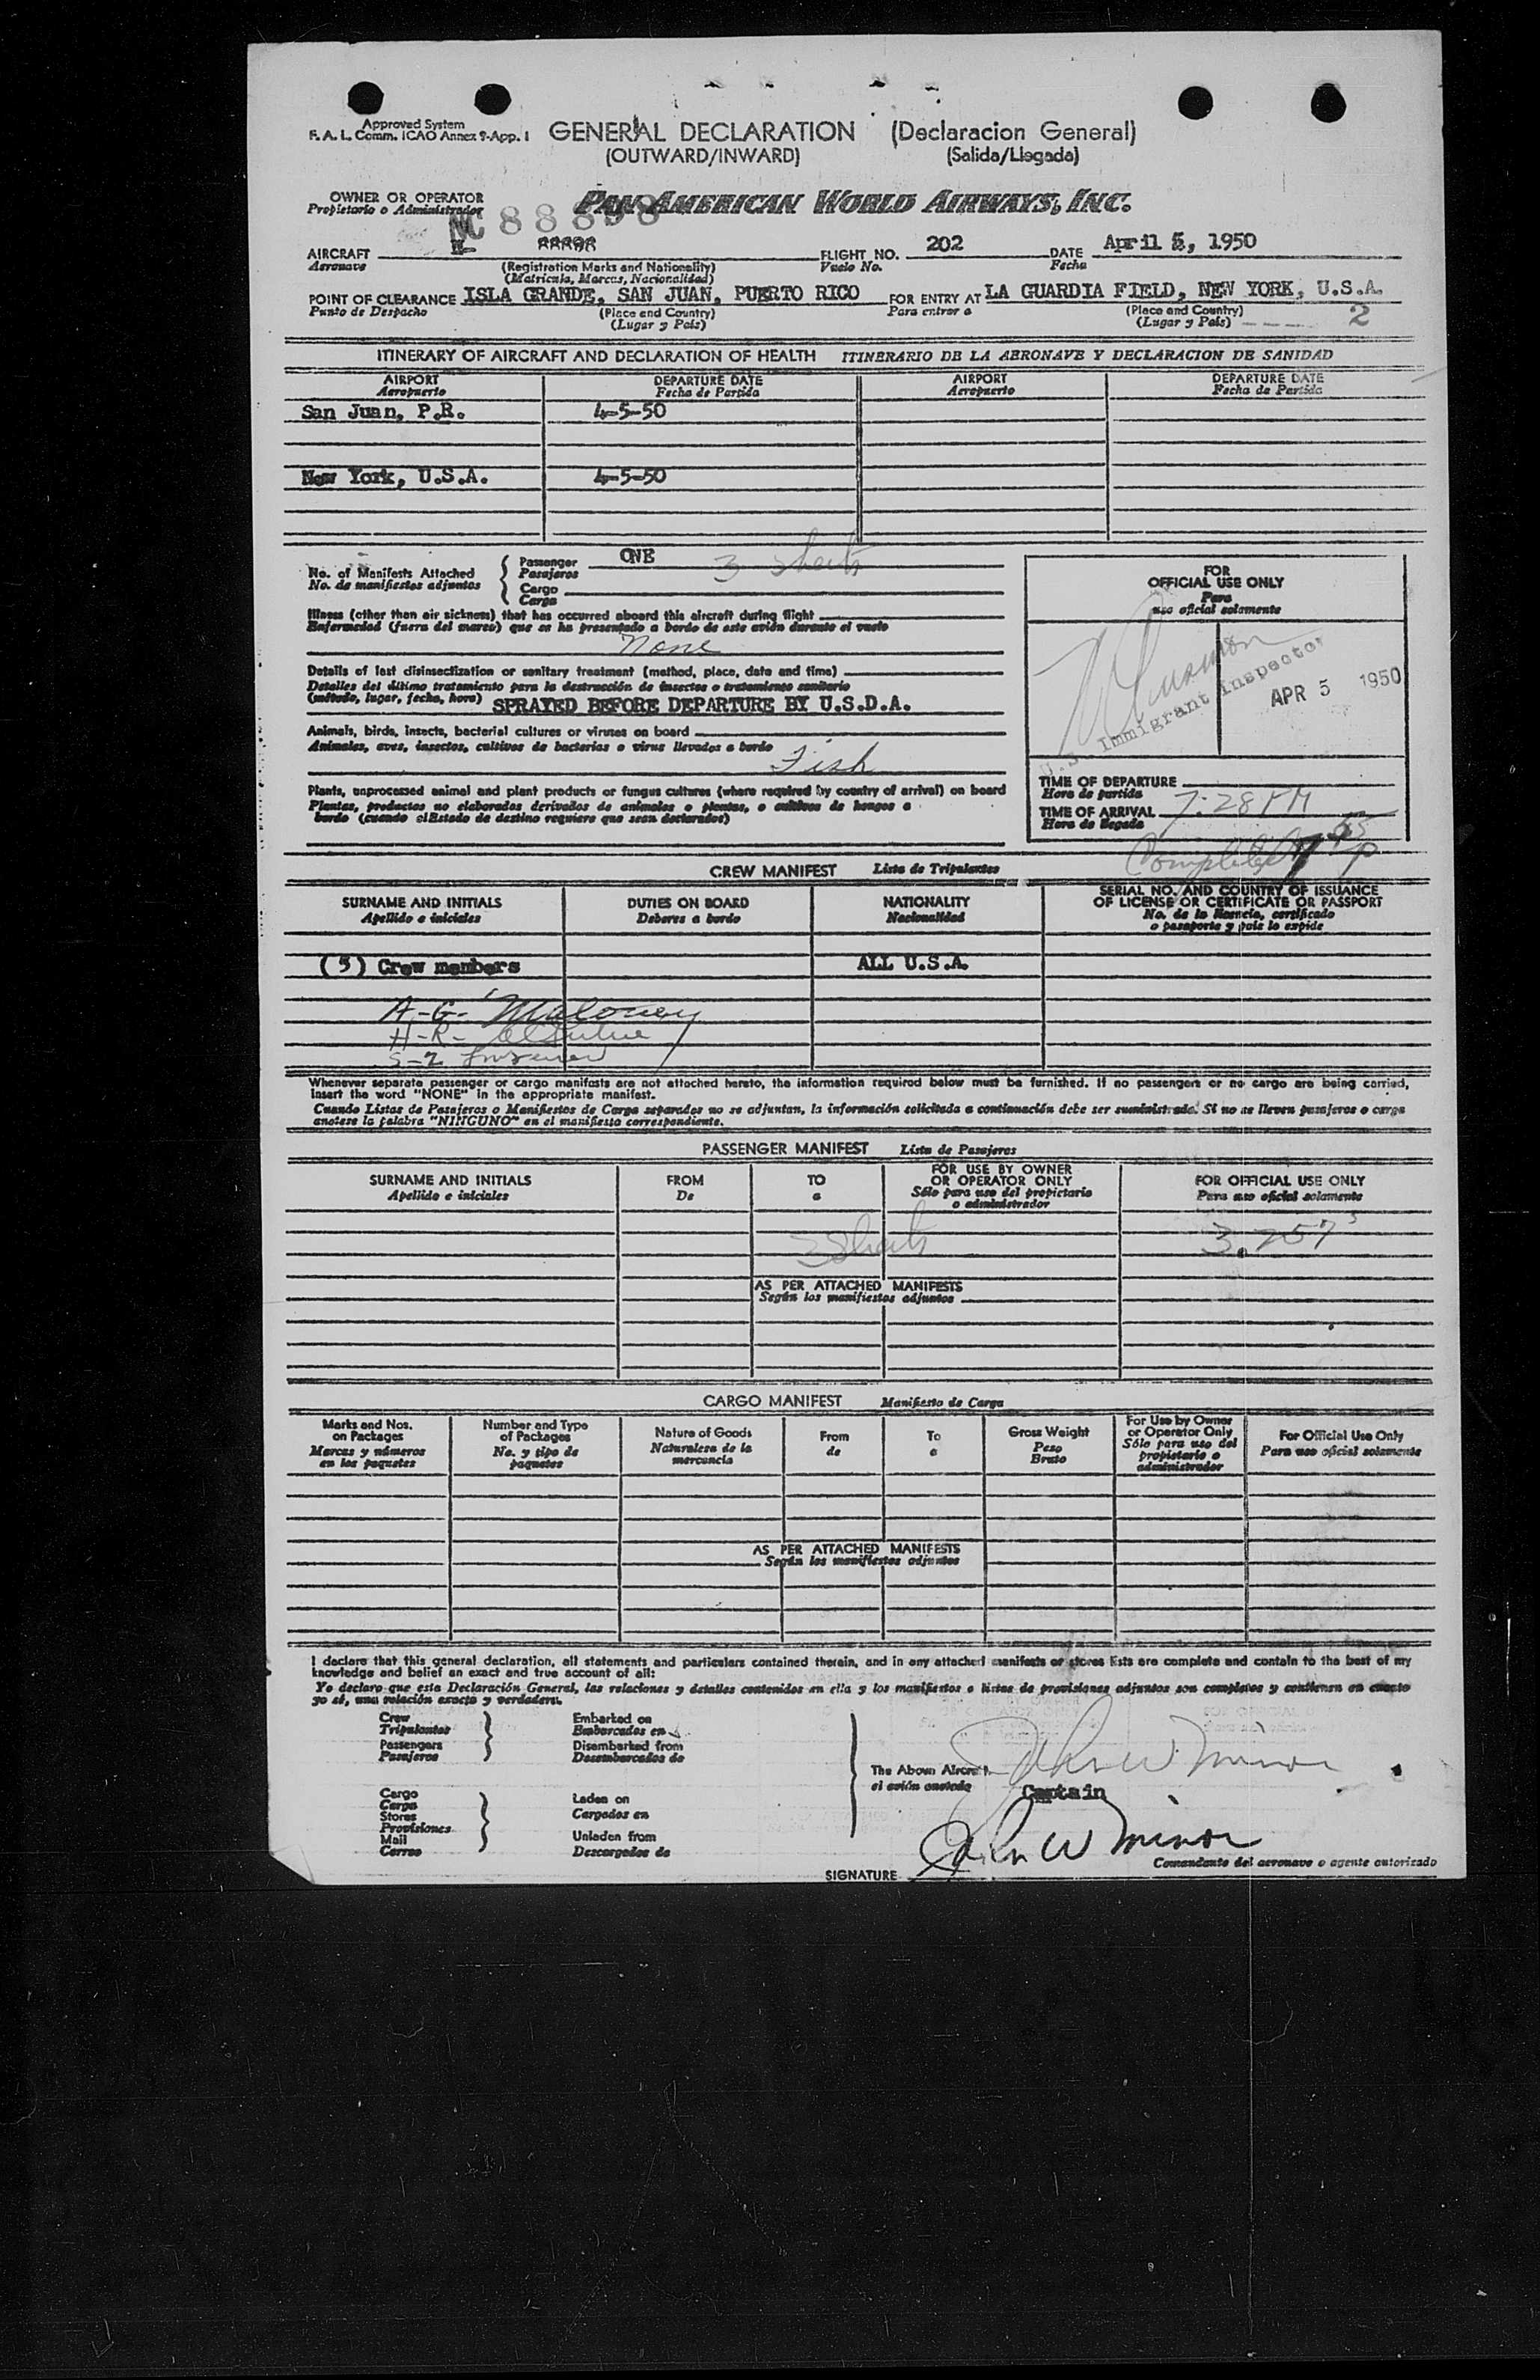 Approved System
F. A. L. Comm. ICAO Annex 9-App. 1
GENERAL DECLARATION (Declaracion General)
(OUTWARD/INWARD) (Salida/Llegada)
OWNER OR OPERATOR PAN AMERICAN WORLD AIRWAYS, INC.
Propietario o Administrador
NC 88898
AIRCRAFT FLIGHT NO. 202 DATE April 5, 1950
Aeronave (Registration Marks and Nationality) Vuelo No. Fecha
(Matricula, Marcas, Nacionalidad)
POINT OF CLEARANCE ISLA GRANDE, SAN JUAN, PUERTO RICO FOR ENTRY AT LA GUARDIA FIELD, NEW YORK, U.S.A.
Punto de Despacho (Place and Country) Para entrar a (Place and Country)
(Lugar y País) (Lugar y País) 2
ITINERARY OF AIRCRAFT AND DECLARATION OF HEALTH ITINERARIO DE LA AERONAVE Y DECLARACION DE SANIDAD
AIRPORT DEPARTURE DATE AIRPORT DEPARTURE DATE
Aeropuerto Fecha de Partida Aeropuerto Fecha de Partida
San Juan, P.R. 4-5-50
New York, U.S.A. 4-5-50
No. of Manifests Attached Passenger ONE 3 sheets
No. de manifiestos adjuntos Pasajeros
Cargo
Carga
Illness (other than air sickness) that has occurred aboard this aircraft during flight
Enfermedad (fuera del mareo) que se ha presentado a bordo de este avión durante el vuelo
None
Details of last disinsectization or sanitary treatment (method, place, date and time)
Detalles del último tratamiento para la destrucción de insectos o tratamiento sanitario
(método, lugar, fecha, hora) SPRAYED BEFORE DEPARTURE BY U.S.D.A.
Animals, birds, insects, bacterial cultures or viruses on board
Animales, aves, insectos, cultivos de bacterias o virus llevados a bordo
Fish
Plants, unprocessed animal and plant products or fungus cultures (where required by country of arrival) on board
Plantas, productos no elaborados derivados de animales o plantas, o cultivos de hongos a
bordo (cuando el Estado de destino requiere que sean declarados)
FOR
OFFICIAL USE ONLY
Para
uso oficial solamente
U.S. Immigrant Inspector
APR 5 1950
TIME OF DEPARTURE
Hora de partida
TIME OF ARRIVAL 7:28 PM
Hora de llegada
Completed 7 55 p
CREW MANIFEST Lista de Tripulantes
SURNAME AND INITIALS DUTIES ON BOARD NATIONALITY SERIAL NO. AND COUNTRY OF ISSUANCE
Apellido e iniciales Deberes a bordo Nacionalidad OF LICENSE OR CERTIFICATE OR PASSPORT
No. de la licencia, certificado
o pasaporte y país lo expide
(5) Crew members ALL U.S.A.
A-G- Maloney
H-R-
S-2
Whenever separate passenger or cargo manifests are not attached hereto, the information required below must be furnished. If no passengers or no cargo are being carried,
insert the word "NONE" in the appropriate manifest.
Cuando Listas de Pasajeros o Manifiestos de Carga separados no se adjuntan, la información solicitada a continuación debe ser suministrada. Si no se lleven pasajeros o carga
anotese la palabra "NINGUNO" en el manifiesto correspondiente.
PASSENGER MANIFEST Lista de Pasajeros
SURNAME AND INITIALS FROM TO FOR USE BY OWNER FOR OFFICIAL USE ONLY
Apellido e iniciales De a OR OPERATOR ONLY Para uso oficial solamente
Sólo para uso del propietario
o administrador
3 sheets
AS PER ATTACHED MANIFESTS
Según los manifiestos adjuntos
CARGO MANIFEST Manifiesto de Carga
Marks and Nos. on Packages Number and Type of Packages Nature of Goods From To Gross Weight For Use by Owner or Operator Only For Official Use Only
Marcas y números en los paquetes No. y tipo de paquetes Naturaleza de la mercancia de a Peso Bruto Sólo para uso del propietario o administrador Para uso oficial solamente
AS PER ATTACHED MANIFESTS
Según los manifiestos adjuntos
I declare that this general declaration, all statements and particulars contained therein, and in any attached manifests or stores lists are complete and contain to the best of my
knowledge and belief an exact and true account of all:
Yo declaro que esta Declaración General, las relaciones y detalles contenidos en ella y los manifiestos o listas de provisiones adjuntos son completos y contienen en cuanto
yo sé, una relación exacta y verdadera.
Crew Embarked on
Tripulantes Embarcados en
Passengers Disembarked from
Pasajeros Desembarcados de
The Above Aircraft John W Minor
el avión anotado Captain
Cargo Laden on
Carga Cargados en
Stores
Provisiones
Mail Unladen from
Correo Descargados de
John W Minor
SIGNATURE Comandante del aeronave o agente autorizado